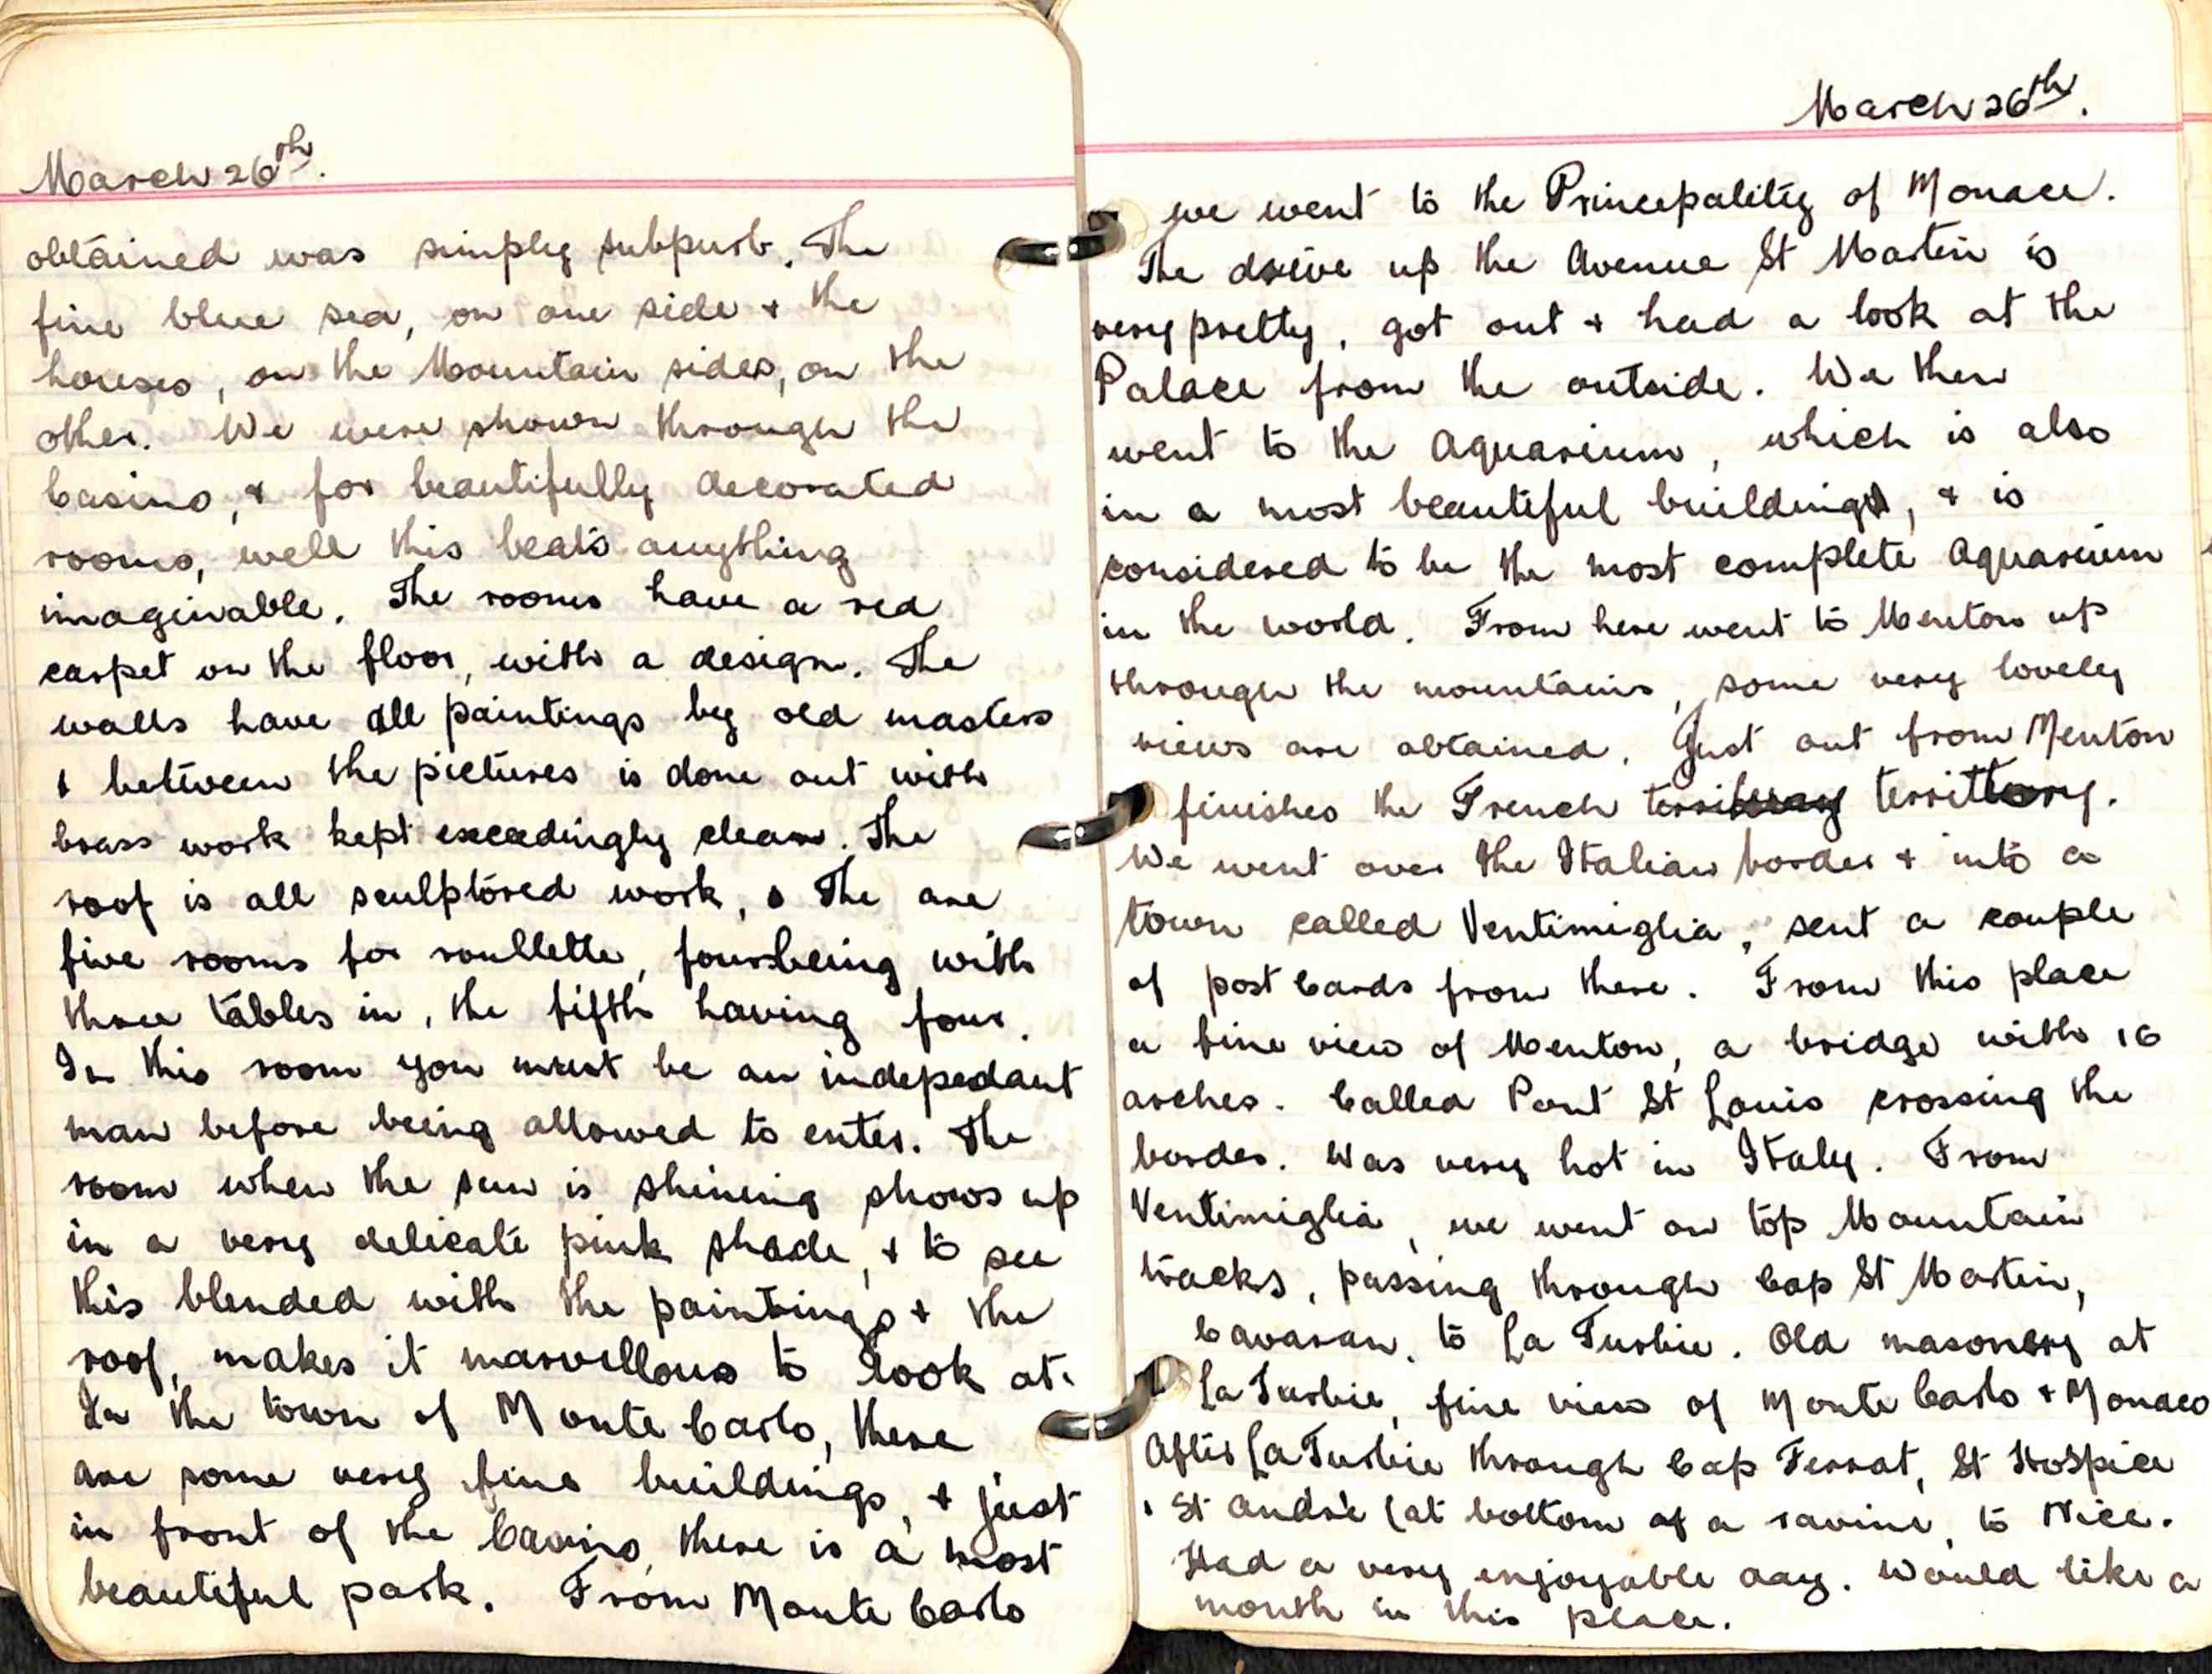 March 26th.
obtained was simply subpurb. The
fine blue sea, on one side & the
houses, on the Mountain sides, on the
other. We were shown through the
Casino, & for beautifully decorated
rooms, well this beats anything
imaginable. The rooms have a red
carpet on the floor, with a design. The
walls have all paintings by old masters
& between the pictures is done out with
brass work kept exceedingly clean. The
roof is all sculptored work, The are
five rooms for roullette, four being with
three tables in, the fifth having four.
In this room you must be an indepedant
man before being allowed to enter. The
room when the sun is shining shows up
in a very delicate pink shade, & to see
this blended with the paintings & the
roof, makes it marvellous to look at.
In the town of Monte Carlo, there
are some very fine buildings, & just
in front of the Casino, there is a most
beautiful park. From Monte Carlo
March 26th.
we went to the Princepality of Monaco.
The drive up the Avenue St Martin is
very pretty, got out & had a look at the
Palace from the outside. We then
went to the Aquarium, which is also
in a most beautiful building, & is
considered to be the most complete Aquarium
in the world. From here went to Menton up
through the mountains, some very lovely
views are obtained. Just out from Menton
finishes the French territtory.
We went over the Italian border & into a
town called Ventimiglia, sent a couple
of post cards from there. From this place
a fine view of Menton, a bridge with 16
arches. Called Pont St Louis crossing the
border. Was very hot in Italy. From
Ventimiglia, we went on top Mountain
tracks, passing through Cap St Martin,
Cavaran, to La Turbie. Old masonery at
La Turbie, fine view of Monte Carlo & Monaco
After La Turbie through Cap Ferrat, St Hospice
, St André (at bottom of a ravine, to Nice.
Had a very enjoyable day. Would like a
month in this place.